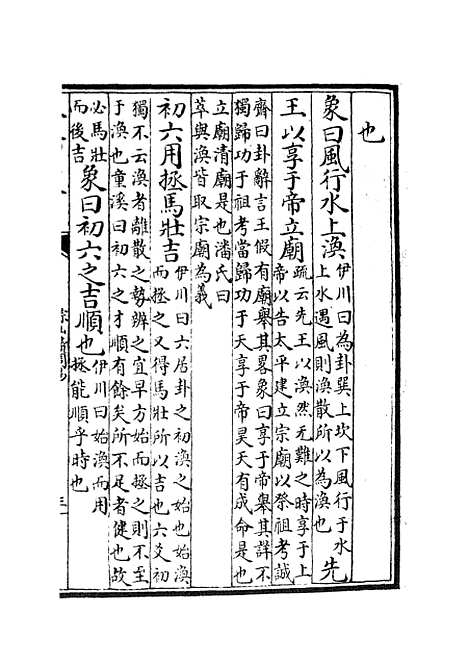 也
象曰風行水上渙
伊川曰為卦巽上坎下風行于水
上水遇風則渙散所以為渙也
先
王以享于帝立廟
疏云先王以渙然无難之時享于上
帝以告太平建立宗廟以祭祖考誠
齋曰卦辭言王假有廟舉其畧象曰享于帝舉其詳不
獨歸功于祖考當歸功于天享于帝昊天有成命是也
立廟清廟是也潘氏曰
萃與渙皆取宗廟為義
初六用拯馬壯吉
伊川曰六居卦之初渙之始也始渙
而拯之又得馬壯所以吉也六爻初
獨不云渙者離散之勢辨之宜早方始而拯之則不至
于渙也童溪曰初六之才順有餘矣所不足者健也故
必馬壯
而後吉
象曰初六之吉順也
伊川曰始渙而用
拯能順乎時也